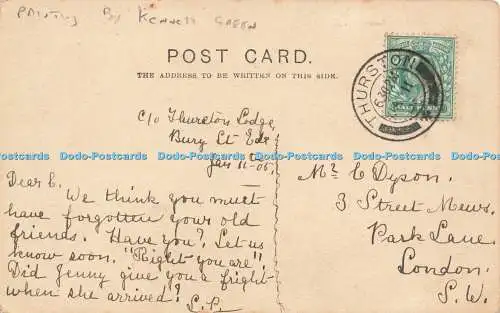 PAINTING BY KENNETH GREEN
POST CARD.
THE ADDRESS TO BE WRITTEN ON THIS SIDE.
THURSTON
C/o Thurston Lodge,
Bury St Eds
Jan 11-06.
Dear C.
We think you must
have forgotten your old
friends. Have you? Let us
know soon. "Right you are"
Did Jenny give you a fright
when she arrived? L.P.
Mr C Dyson.
3 Street Mews.
Park Lane.
London.
S.W.
Dodo-Postcards Dodo-Postcards Dodo-Postcards Dodo-Postcards Dodo-Postcards